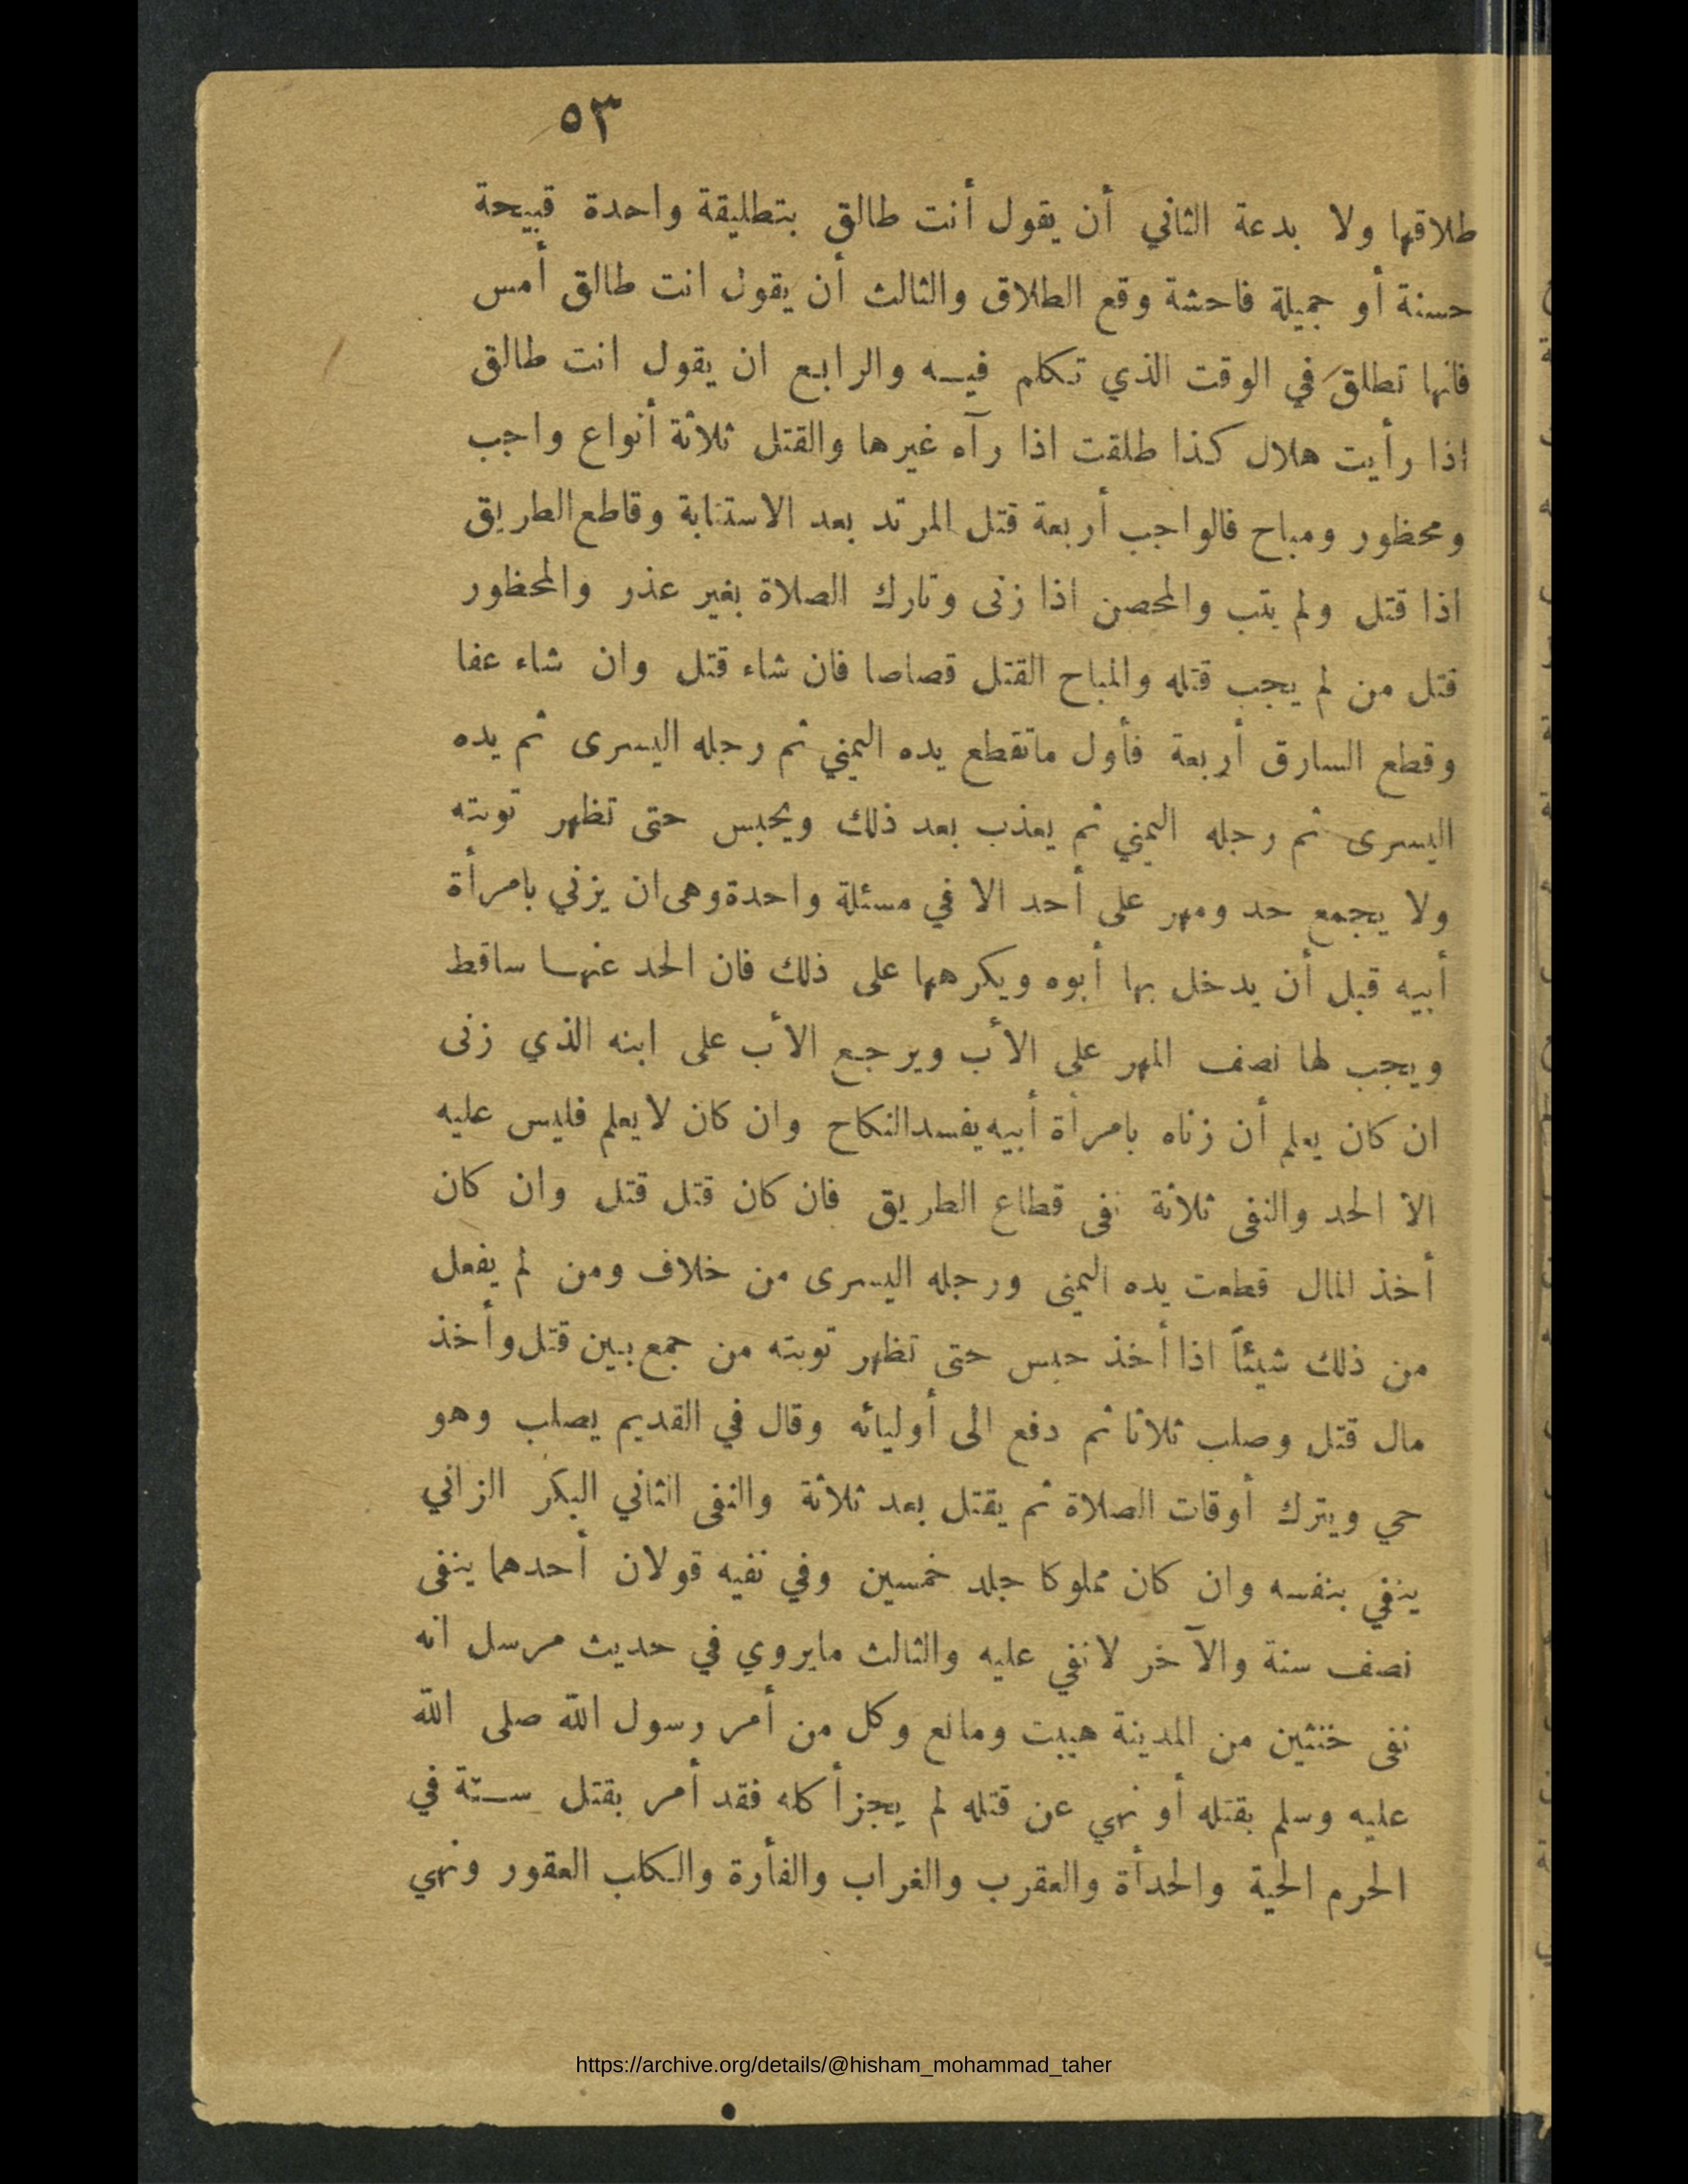 ٥٣
طلاقها ولا بدعة الثاني أن يقول أنت طالق بتطليقة واحدة قبيحة
حسنة أو جميلة فاحشة وقع الطلاق والثالث أن يقول انت طالق أمس
فانها تطلق في الوقت الذي تكلم فيه والرابع ان يقول انت طالق
اذا رأيت هلال كذا طلقت اذا رآه غيرها والقتل ثلاثة أنواع واجب
ومحظور ومباح فالواجب أربعة قتل المرتد بعد الاستتابة وقاطع الطريق
اذا قتل ولم يتب والمحصن اذا زنى وتارك الصلاة بغير عذر والمحظور
قتل من لم يجب قتله والمباح القتل قصاصا فان شاء قتل وان شاء عفا
وقطع السارق أربعة فأول ماتقطع يده اليمني ثم رجله اليسرى ثم يده
اليسرى ثم رجله اليمني ثم يعذب بعد ذلك ويحبس حتى تظهر توبته
ولا يجمع حد ومهر على أحد الا في مسئلة واحدة وهى ان يزني بامرأة
أبيه قبل أن يدخل بها أبوه ويكرهها على ذلك فان الحد عنها ساقط
ويجب لها نصف المهر على الأب ويرجع الأب على ابنه الذي زنى
ان كان يعلم أن زناه بامرأة أبيه يفسد النكاح وان كان لايعلم فليس عليه
الا الحد والنفى ثلاثة نفى قطاع الطريق فان كان قتل قتل وان كان
أخذ المال قطعت يده اليمنى ورجله اليسرى من خلاف ومن لم يفعل
من ذلك شيئاً اذا أخذ حبس حتى تظهر توبته من جمع بين قتل وأخذ
مال قتل وصلب ثلاثا ثم دفع الى أوليائه وقال في القديم يصلب وهو
حي ويترك أوقات الصلاة ثم يقتل بعد ثلاثة والنفى الثاني البكر الزاني
ينفي بنفسه وان كان مملوكا جلد خمسين وفي نفيه قولان أحدهما ينفى
نصف سنة والآخر لانفي عليه والثالث مايروي في حديث مرسل انه
نفى خنثين من المدينة هيبت ومانع وكل من أمر رسول الله صلى الله
عليه وسلم بقتله أو نهي عن قتله لم يجز أكله فقد أمر بقتل ستة في
الحرم الحية والحدأة والعقرب والغراب والفأرة والكلب العقور ونهي
https://archive.org/details/@hisham_mohammad_taher